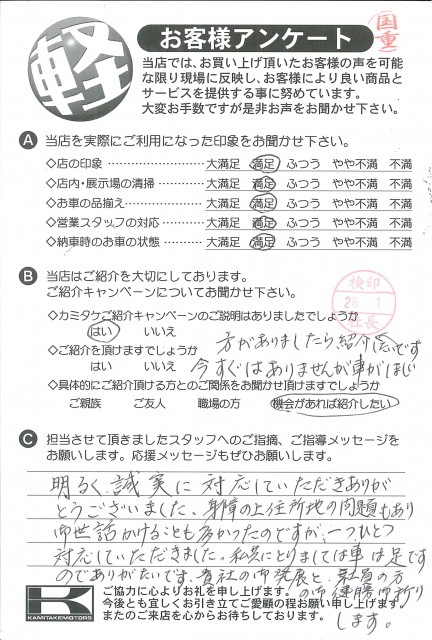 軽
お客様アンケート
国重
当店では、お買い上げ頂いたお客様の声を可能
な限り現場に反映し、お客様により良い商品と
サービスを提供する事に努めています。
大変お手数ですが是非お声をお聞かせ下さい。
A 当店を実際にご利用になった印象をお聞かせ下さい。
◇店の印象 ………………… 大満足 満足 ふつう やや不満 不満
◇店内・展示場の清掃 ………… 大満足 満足 ふつう やや不満 不満
◇お車の品揃え ……………… 大満足 満足 ふつう やや不満 不満
◇営業スタッフの対応 ………… 大満足 満足 ふつう やや不満 不満
◇納車時のお車の状態 ………… 大満足 満足 ふつう やや不満 不満
B 当店はご紹介を大切にしております。
ご紹介キャンペーンについてお聞かせ下さい。
検印
28. 1
社長
◇カミタケご紹介キャンペーンのご説明はありましたでしょうか
はい いいえ
◇ご紹介を頂けますでしょうか
はい いいえ
今すぐはありませんが車がほしい
方がありましたら紹介したいです
◇具体的にご紹介頂ける方とのご関係をお聞かせ頂けますでしょうか
ご親族 ご友人 職場の方 機会があれば紹介したい
C 担当させて頂きましたスタッフへのご指摘、ご指導メッセージを
お願いします。応援メッセージもぜひお願いします。
明るく、誠実に対応していただきありが
とうございました。身障の上、住所地の問題もあり
御世話かけることも多かったのですが、一つひとつ
対応していただきました。私共にとりましては車は足です
のでありがたいです。貴社の御発展と、社員の方
の御連勝御祈り
します。
K
KAMITAKEMOTORS
ご協力に心よりお礼を申し上げます。
今後とも宜しくお引き立てご愛顧の程お願い申し上げます。
またのご来店を心からお待ちしております。